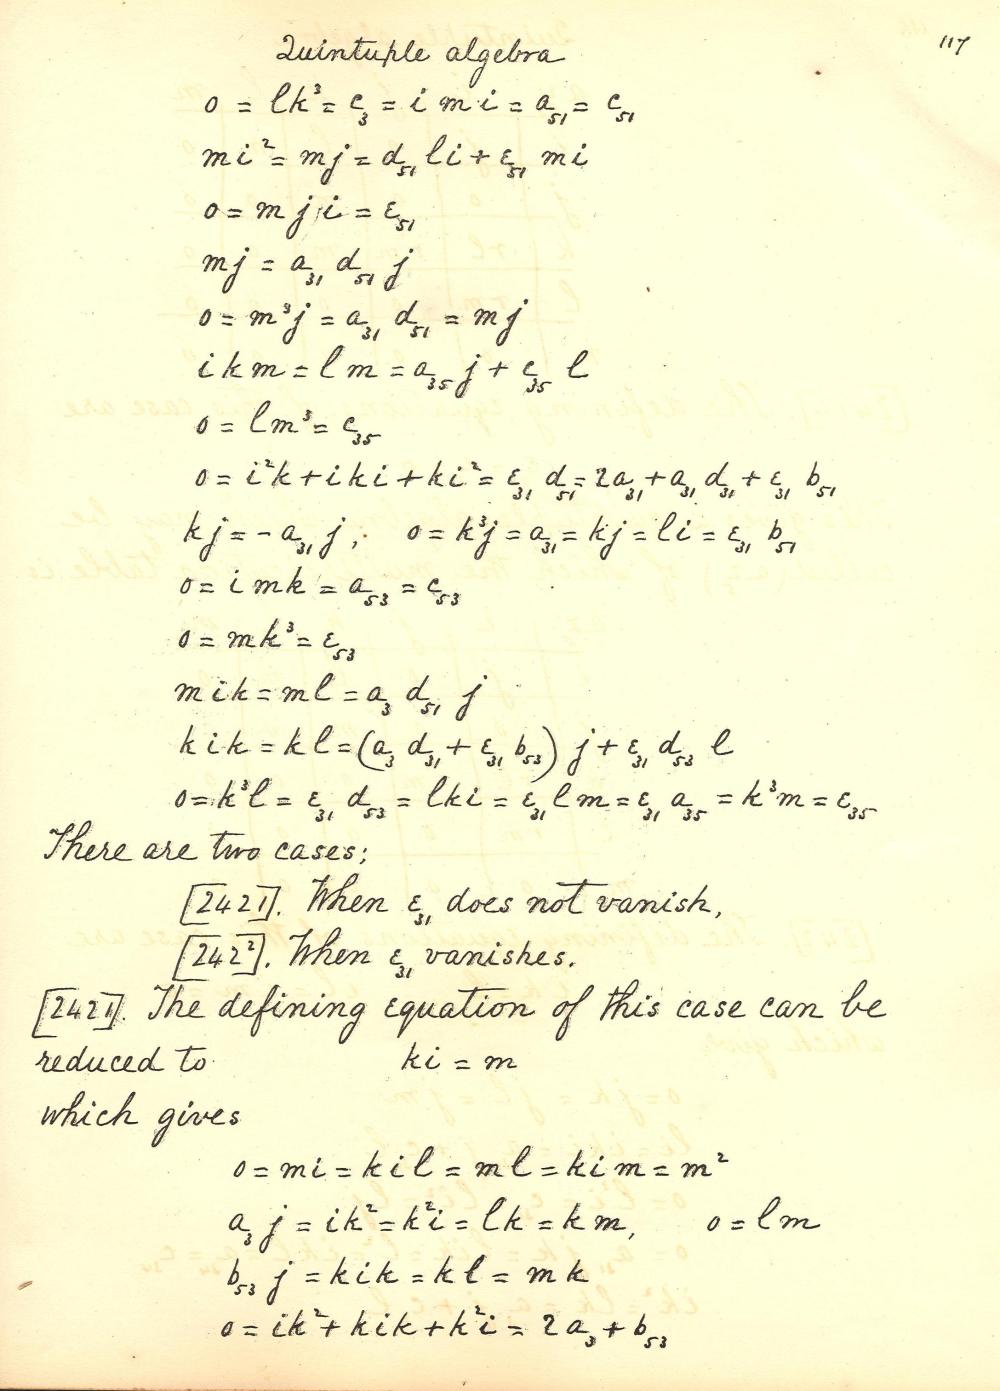 Quintuple algebra
117
0 = lk³ = c₃ = i m i = a₅₁ = c₅₁
mi² = mj = d₅₁ li + ε₅₁ mi
0 = mji = ε₅₁
mj = a₃₁ d₅₁ j
0 = m³j = a₃₁ d₅₁ = mj
ikm = lm = a₃₅ j + c₃₅ l
0 = lm³ = c₃₅
0 = i²k + iki + ki² = ε₃₁ d₅₁ = 2a₃₁ + a₃₁ d₃₁ + ε₃₁ b₅₁
kj = -a₃₁ j, 0 = k³j = a₃₁ = kj = li = ε₃₁ b₅₁
0 = imk = a₅₃ = c₅₃
0 = mk³ = ε₅₃
mik = ml = a₃ d₅₁ j
kik = kl = (a₃ d₃₁ + ε₃₁ b₅₃) j + ε₃₁ d₅₃ l
0 = k³l = ε₃₁ d₅₃ = lki = ε₃₁ lm = ε₃₁ a₃₅ = k³m = ε₃₅
There are two cases;
[2421]. When ε₃₁ does not vanish,
[242²]. When ε₃₁ vanishes.
[2421]. The defining equation of this case can be
reduced to ki = m
which gives
0 = mi = kil = ml = kim = m²
a₃ j = ik² = k²i = lk = km, 0 = lm
b₅₃ j = kik = kl = mk
0 = ik² + kik + k²i = 2a₃ + b₅₃